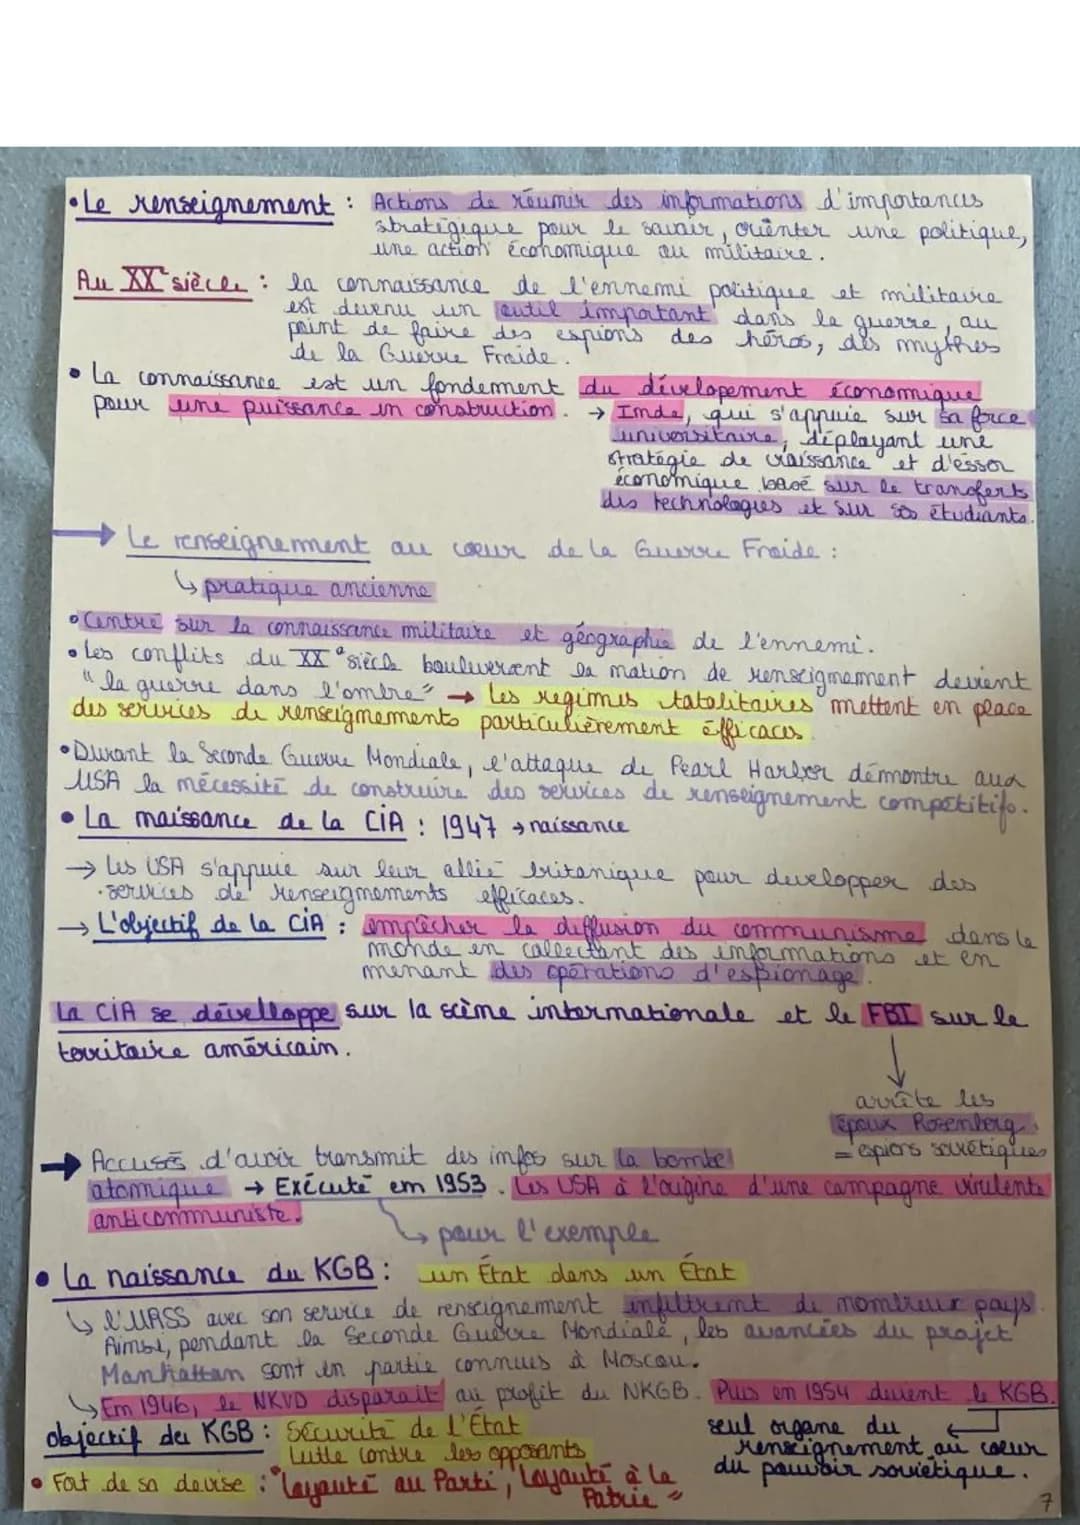 •Le renseignement : Actions de réunir des informations d'importances
stratégique pour le savoir, orienter une politique,
une action économique ou militaire.
Au XXe siècle : la connaissance de l'ennemi politique et militaire
est devenu un outil important dans la guerre, au
point de faire des espions des héros, des mythes
de la Guerre Froide.
• La connaissance est un fondement du dévelopement économique
pour une puissance en construction. → Inde, qui s'appuie sur sa force
universitaire, déployant une
stratégie de craissance et d'essor
économique basé sur le transferts
des technologies et sur ses étudiants.
→ Le renseignement au cœur de la Guerre Froide :
↳ pratique ancienne
• Centré sur la connaissance militaire et géographie de l'ennemi.
• Les conflits du XXe siècle bouleversent la nation de renseignement devient
"la guerre dans l'ombre" → Les regimes totalitaires mettent en place
des services de renseignements particulièrement éfficaces
• Durant la Seconde Guerre Mondiale, l'attaque de Pearl Harbor démontre aux
USA la nécessité de construire des services de renseignement compétitifs.
• La naissance de la CIA : 1947 → naissance
→ Les USA s'appuie sur leur allié britanique pour developper des
services de renseignements efficaces.
→ L'objectif de la CIA : empêcher la diffusion du communisme dans le
monde en collectant des informations et en
menant des opérations d'espionage.
La CIA se dévelloppe sur la scène internationale et le FBI sur le
territoire américain.
arrête les
époux Rosenberg
= espions soviétiques
→ Accusés d'avoir transmit des infos sur la bombe
atomique → Exécuté en 1953. Les USA à l'origine d'une campagne virulente
anticommuniste.
↳ pour l'exemple
• La naissance du KGB : un État dans un État
↳ l'URSS avec son service de renseignement infiltrent de nombreux pays.
Ainsi, pendant la Seconde Guerre Mondiale, les avancées du projet
Manhattan sont en partie connues à Moscou.
↳ Em 1946, le NKVD disparait au profit du NKGB. Puis en 1954 devient le KGB.
seul organe du
renseignement au cœur
du pouvoir soviétique.
objectif du KGB : Sécurité de l'État
Lutte contre les opposants
• Fort de sa devise : "Loyauté au Parti, Loyauté à la
Patrie"
7